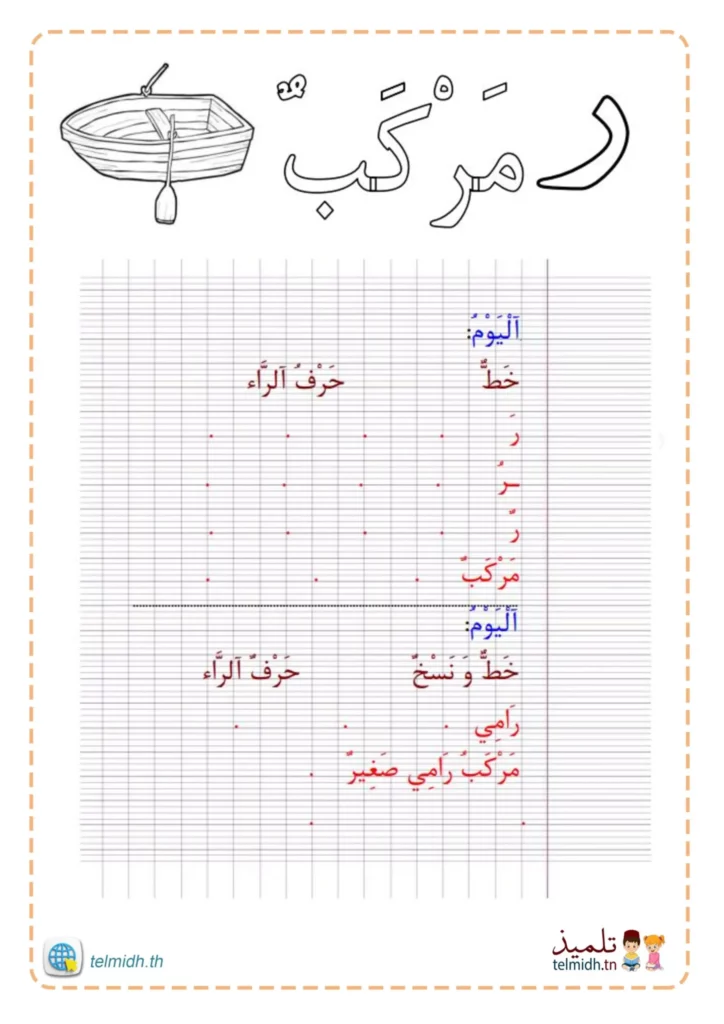 ر مَرْكَبٌ
اَلْيَوْمُ:
خَطٌّ حَرْفُ اَلرَّاء
رَ . . . .
ـرُ . . . .
رٌ . . . .
مَرْكَبٌ . . .
اَلْيَوْمُ:
خَطٌّ وَ نَسْخٌ حَرْفٌ اَلرَّاء
رَامِي . . .
مَرْكَبُ رَامِي صَغِيرٌ .
. .
telmidh.th
تلميذ
telmidh.tn